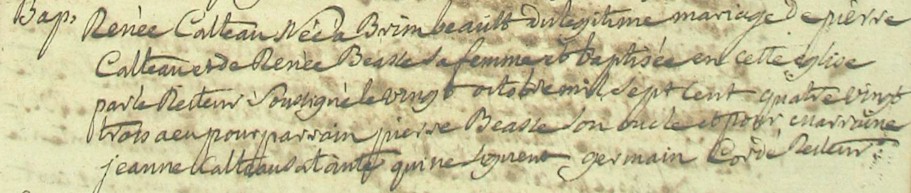 Bap. Renée Calteau Née a Brimbeault du legitime mariage de pierre
Calteau et de Renée Beasse sa femme et baptisée en cette église
par le Recteur Soussigné le vingt octobre mil Sept cent quatre vingt
trois a eu pour parrain pierre Beasse Son oncle et pour marraine
jeanne Calteau sa tante qui ne signent germain Cordé Recteur